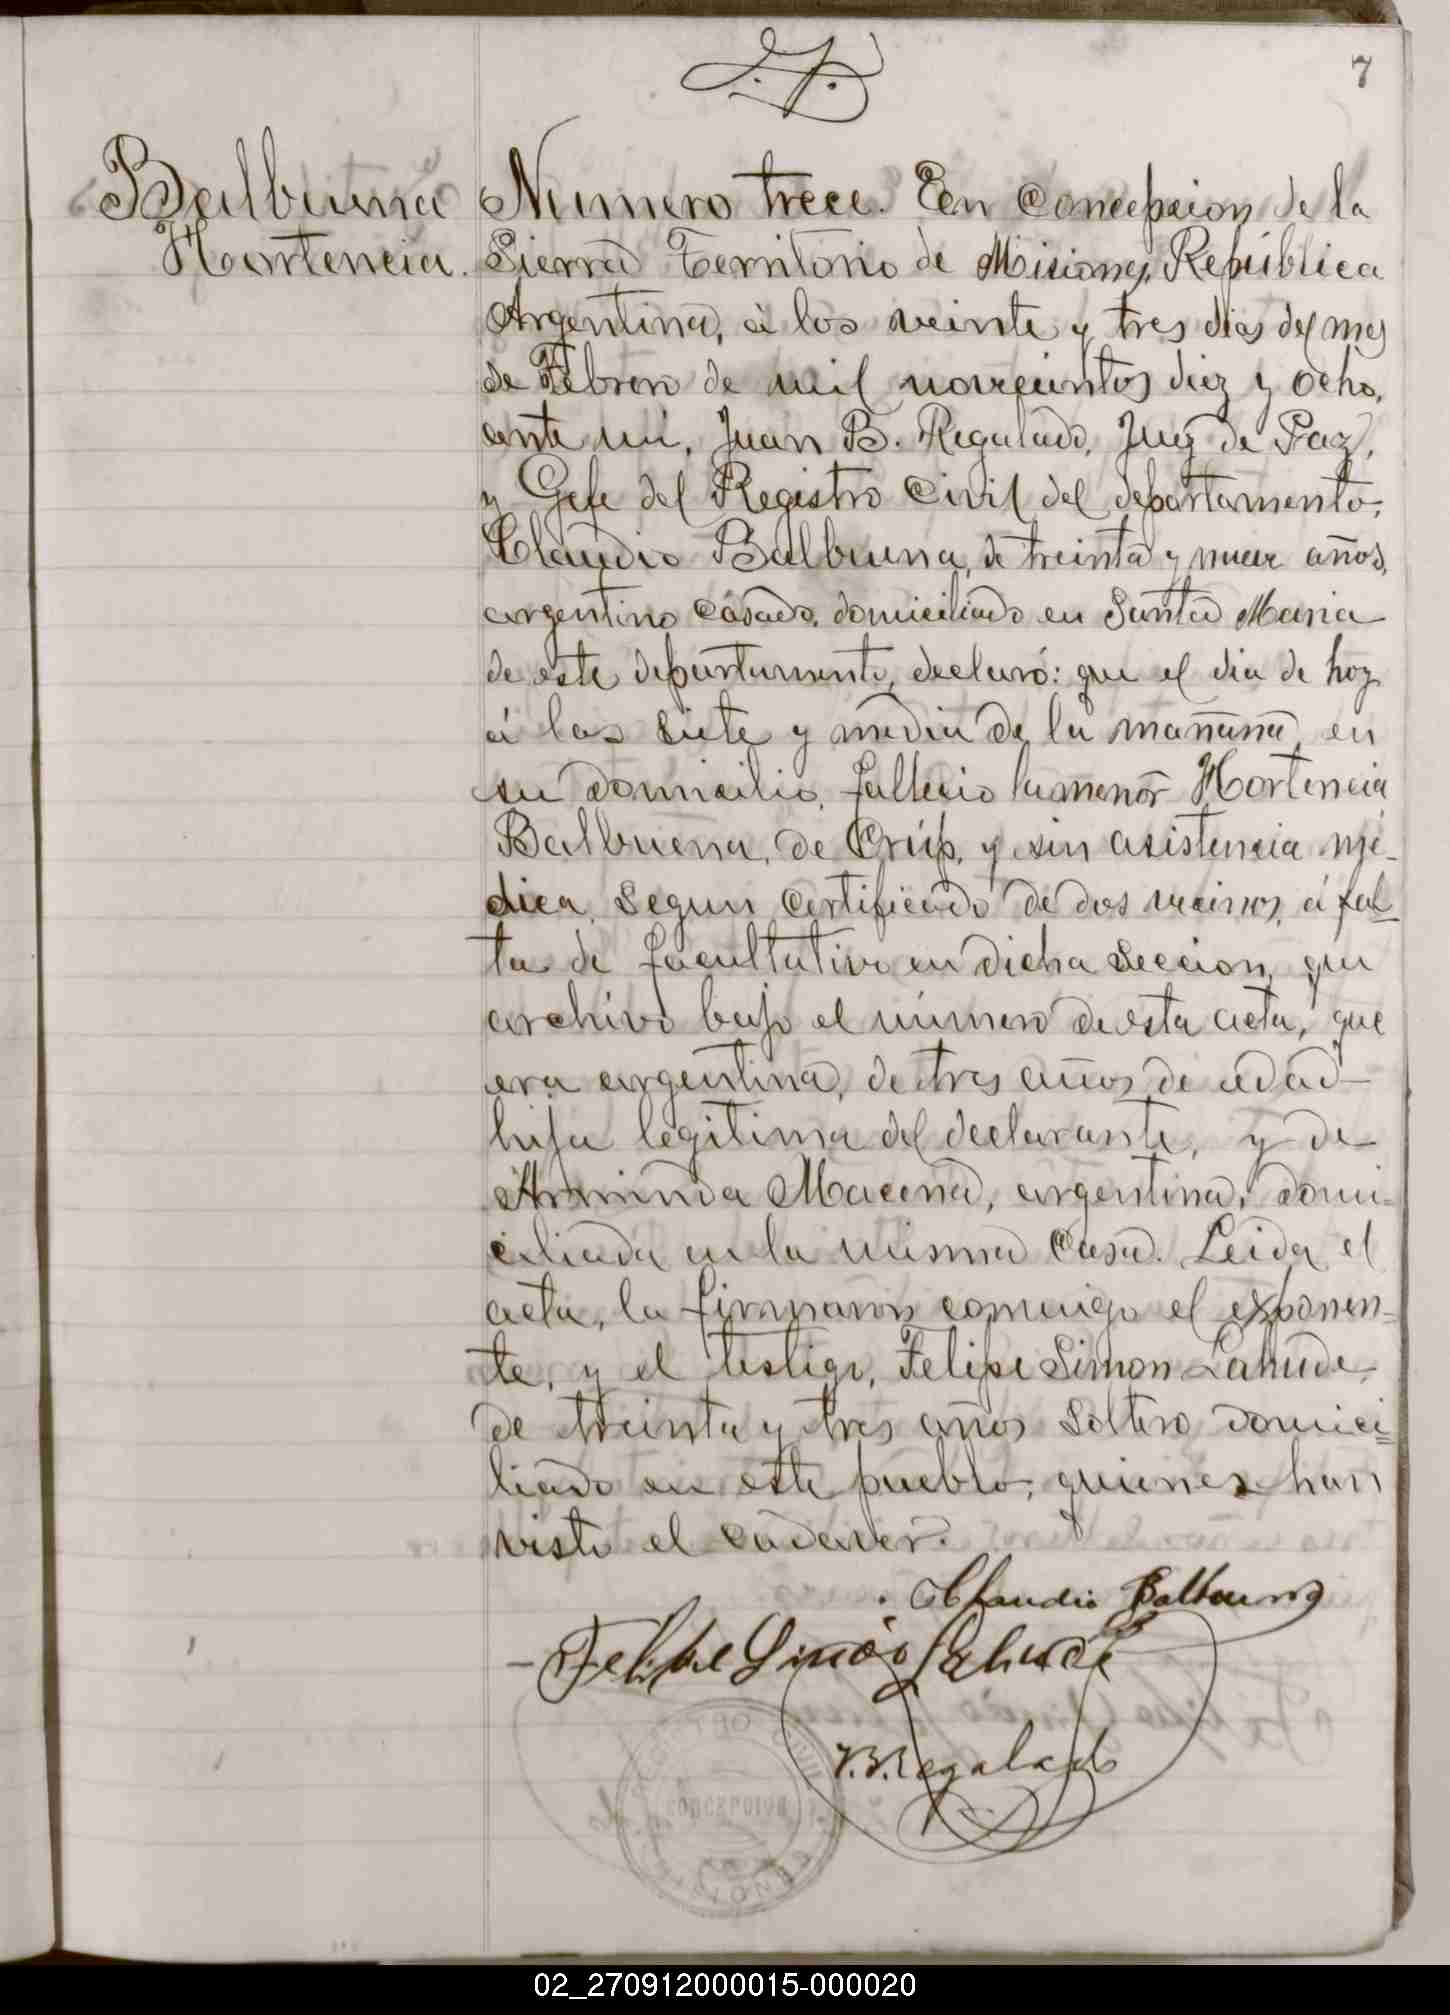 7
Balbuena
Hortencia.
Numero trece. En Concepcion de la
Sierra Territorio de Misiones, República
Argentina, á los veinte y tres dias del mes
de Febrero de mil novecientos diez y ocho,
ante mi, Juan B. Regalado, Juez de Paz,
y Gefe del Registro Civil del departamento,
Claudio Balbuena, de treinta y nueve años,
argentino casado, domiciliado en Santa Maria
de este departamento, declaró: que el dia de hoy
á las siete y media de la mañana, en
su domicilio, fallecio la menor Hortencia
Balbuena, de Crúp, y sin asistencia mé-
dica, segun certificado de dos vecinos, á fal-
ta de facultativo en dicha seccion, que
archivo bajo el número de esta acta, que
era argentina, de tres años de edad
hija legitima del declarante, y de
Arminda Macena, argentina, domi-
ciliada en la misma casa. Leida el
acta, la firmaron conmigo el exponen-
te, y el testigo, Felipe Simon Lahude,
de treinta y tres años soltero domici-
liado en este pueblo, quienes han
visto el cadaver.
Claudio Balbuena
Felipe Simão Lahude
J. B. Regalado
REGISTRO CIVIL
CONCEPCION
MISIONES
02_270912000015-000020